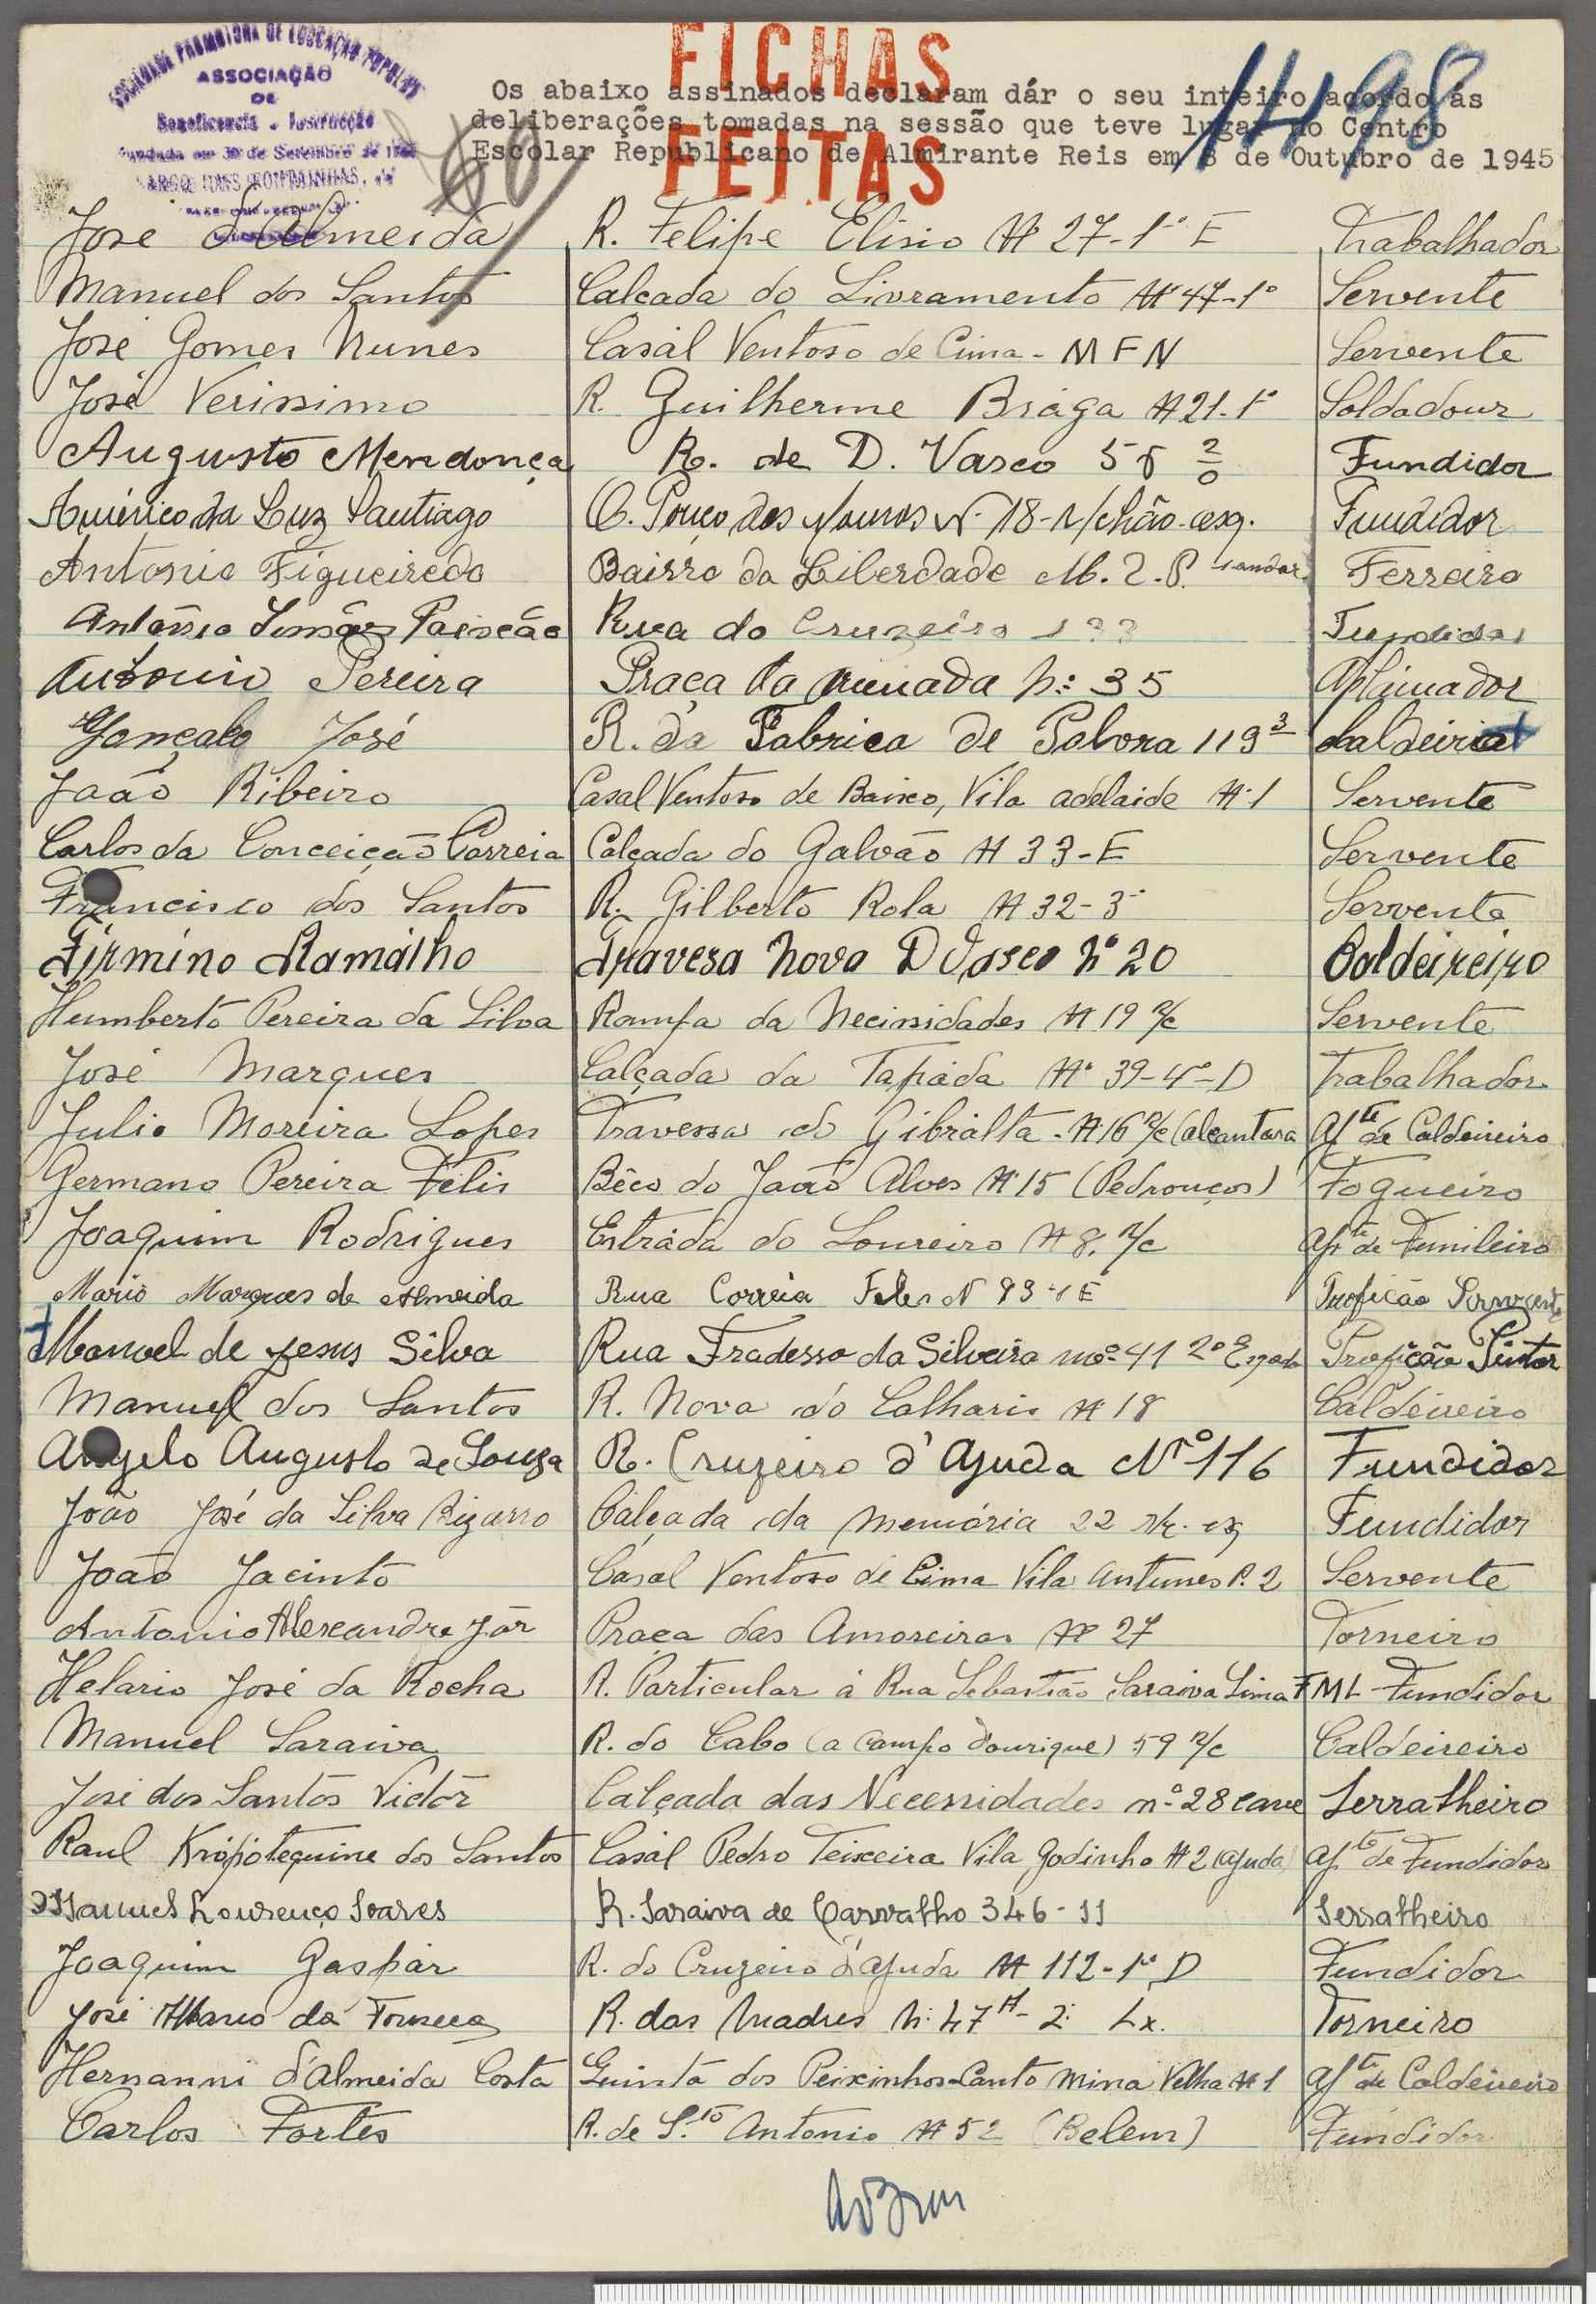 SOCIEDADE PROMOTORA DE EDUCAÇÃO POPULAR
ASSOCIAÇÃO
DE
Beneficencia e Instrucção
FICHAS
FEITAS
1498
60
Os abaixo assinados declaram dár o seu inteiro acordo ás
deliberações tomadas na sessão que teve lugar no Centro
Escolar Republicano de Almirante Reis em 8 de Outubro de 1945
José d'Almeida R. Felipe Elisio Nº 27-1º E Trabalhador
Manuel dos Santos Calçada do Livramento Nº 47-1º Servente
José Gomes Nunes Casál Ventoso de Cima - M F N Servente
José Verissimo R. Guilherme Braga Nº 21-1º Soldadour
Augusto Mendonça R. de D. Vasco Fundidor
Américo da Luz Santiago C. Pouço dos Mouros Nº 18-r/chão-esq. Fundidor
Antonio Figueiredo Bairro da Liberdade M. 2. P. 1 andar Ferreiro
António Simões Paixão Rua do Cruzeiro 133 Fundidor
Antonio Pereira Praça da Armada N.º 35 Aplainador
Gonçalo José R. da Fabrica de Polvora 119 3º Caldeiria
João Ribeiro Casal Ventoso de Baixo, Vila adelaide Nº 1 Servente
Carlos da Conceição Correia Calçada do Galvão Nº 33-E Servente
Francisco dos Santos R. Gilberto Rola Nº 32-3º Servente
Firmino Ramalho Travesa Nova D Vasco Nº 20 Caldeireiro
Humberto Pereira da Silva Rampa da Necissidades Nº 19 r/c Servente
José Marques Calçada da Tapáda Nº 39-4º-D Trabalhador
Julio Moreira Lopes Travessa do Gibralta - Nº 16 r/c (alcantara Ajte de Caldeireiro
Germano Pereira Felis Bêco do João Alves Nº 15 (Pedrouços) Fogueiro
Joaquim Rodrigues Estráda do Loureiro Nº 8. r/c Ajte de Funileiro
Mario Marques de Almeida Rua Correia Teles N 93-1 E Profição Servente
Manuel de Jesus Silva Rua Fradesso da Silveira nº 41 2º Profição Pintor
Manuel dos Santos R. Nova do Calharis Nº 18 Caldeireiro
Angelo Augusto de Souza R. Cruzeiro d'Ajuda Nº 116 Fundidor
João José da Silva Bizarro Calçada da Memória 22 r/c. esq Fundidor
João Jacinto Casal Ventoso de Cima Vila Antunes P. 2 Servente
António Alexandre Jór Praça das Amoreiras Nº 27 Torneiro
Helario José da Rocha R. Particular á Rua Sebastião Saraiva Lima F ML Fundidor
Manuel Saraiva R. do Cabo (a Campo d'ourique) 59 r/c Caldeireiro
José dos Santos Victor Calçada das Necessidades nº 28 cave Serralheiro
Raul Krópótequine dos Santos Casál Pedro Teixeira Vila Godinho Nº 2 (Ajuda) Ajte de Fundidor
Manuel Lourenço Soares R. Saraiva de Carvalho 346-11 Serralheiro
Joaquim Gaspar R. do Cruzeiro d'ajuda Nº 112-1º D Fundidor
José Albano da Fonseca R. das Madres N.º 47A-2º Lx. Torneiro
Hernanni d'Almeida Costa Quinta dos Peixinhos-Canto Mina Velha Nº 1 Ajte de Caldeireiro
Carlos Fortes R. de S.to Antonio Nº 52 (Belem) Fundidor